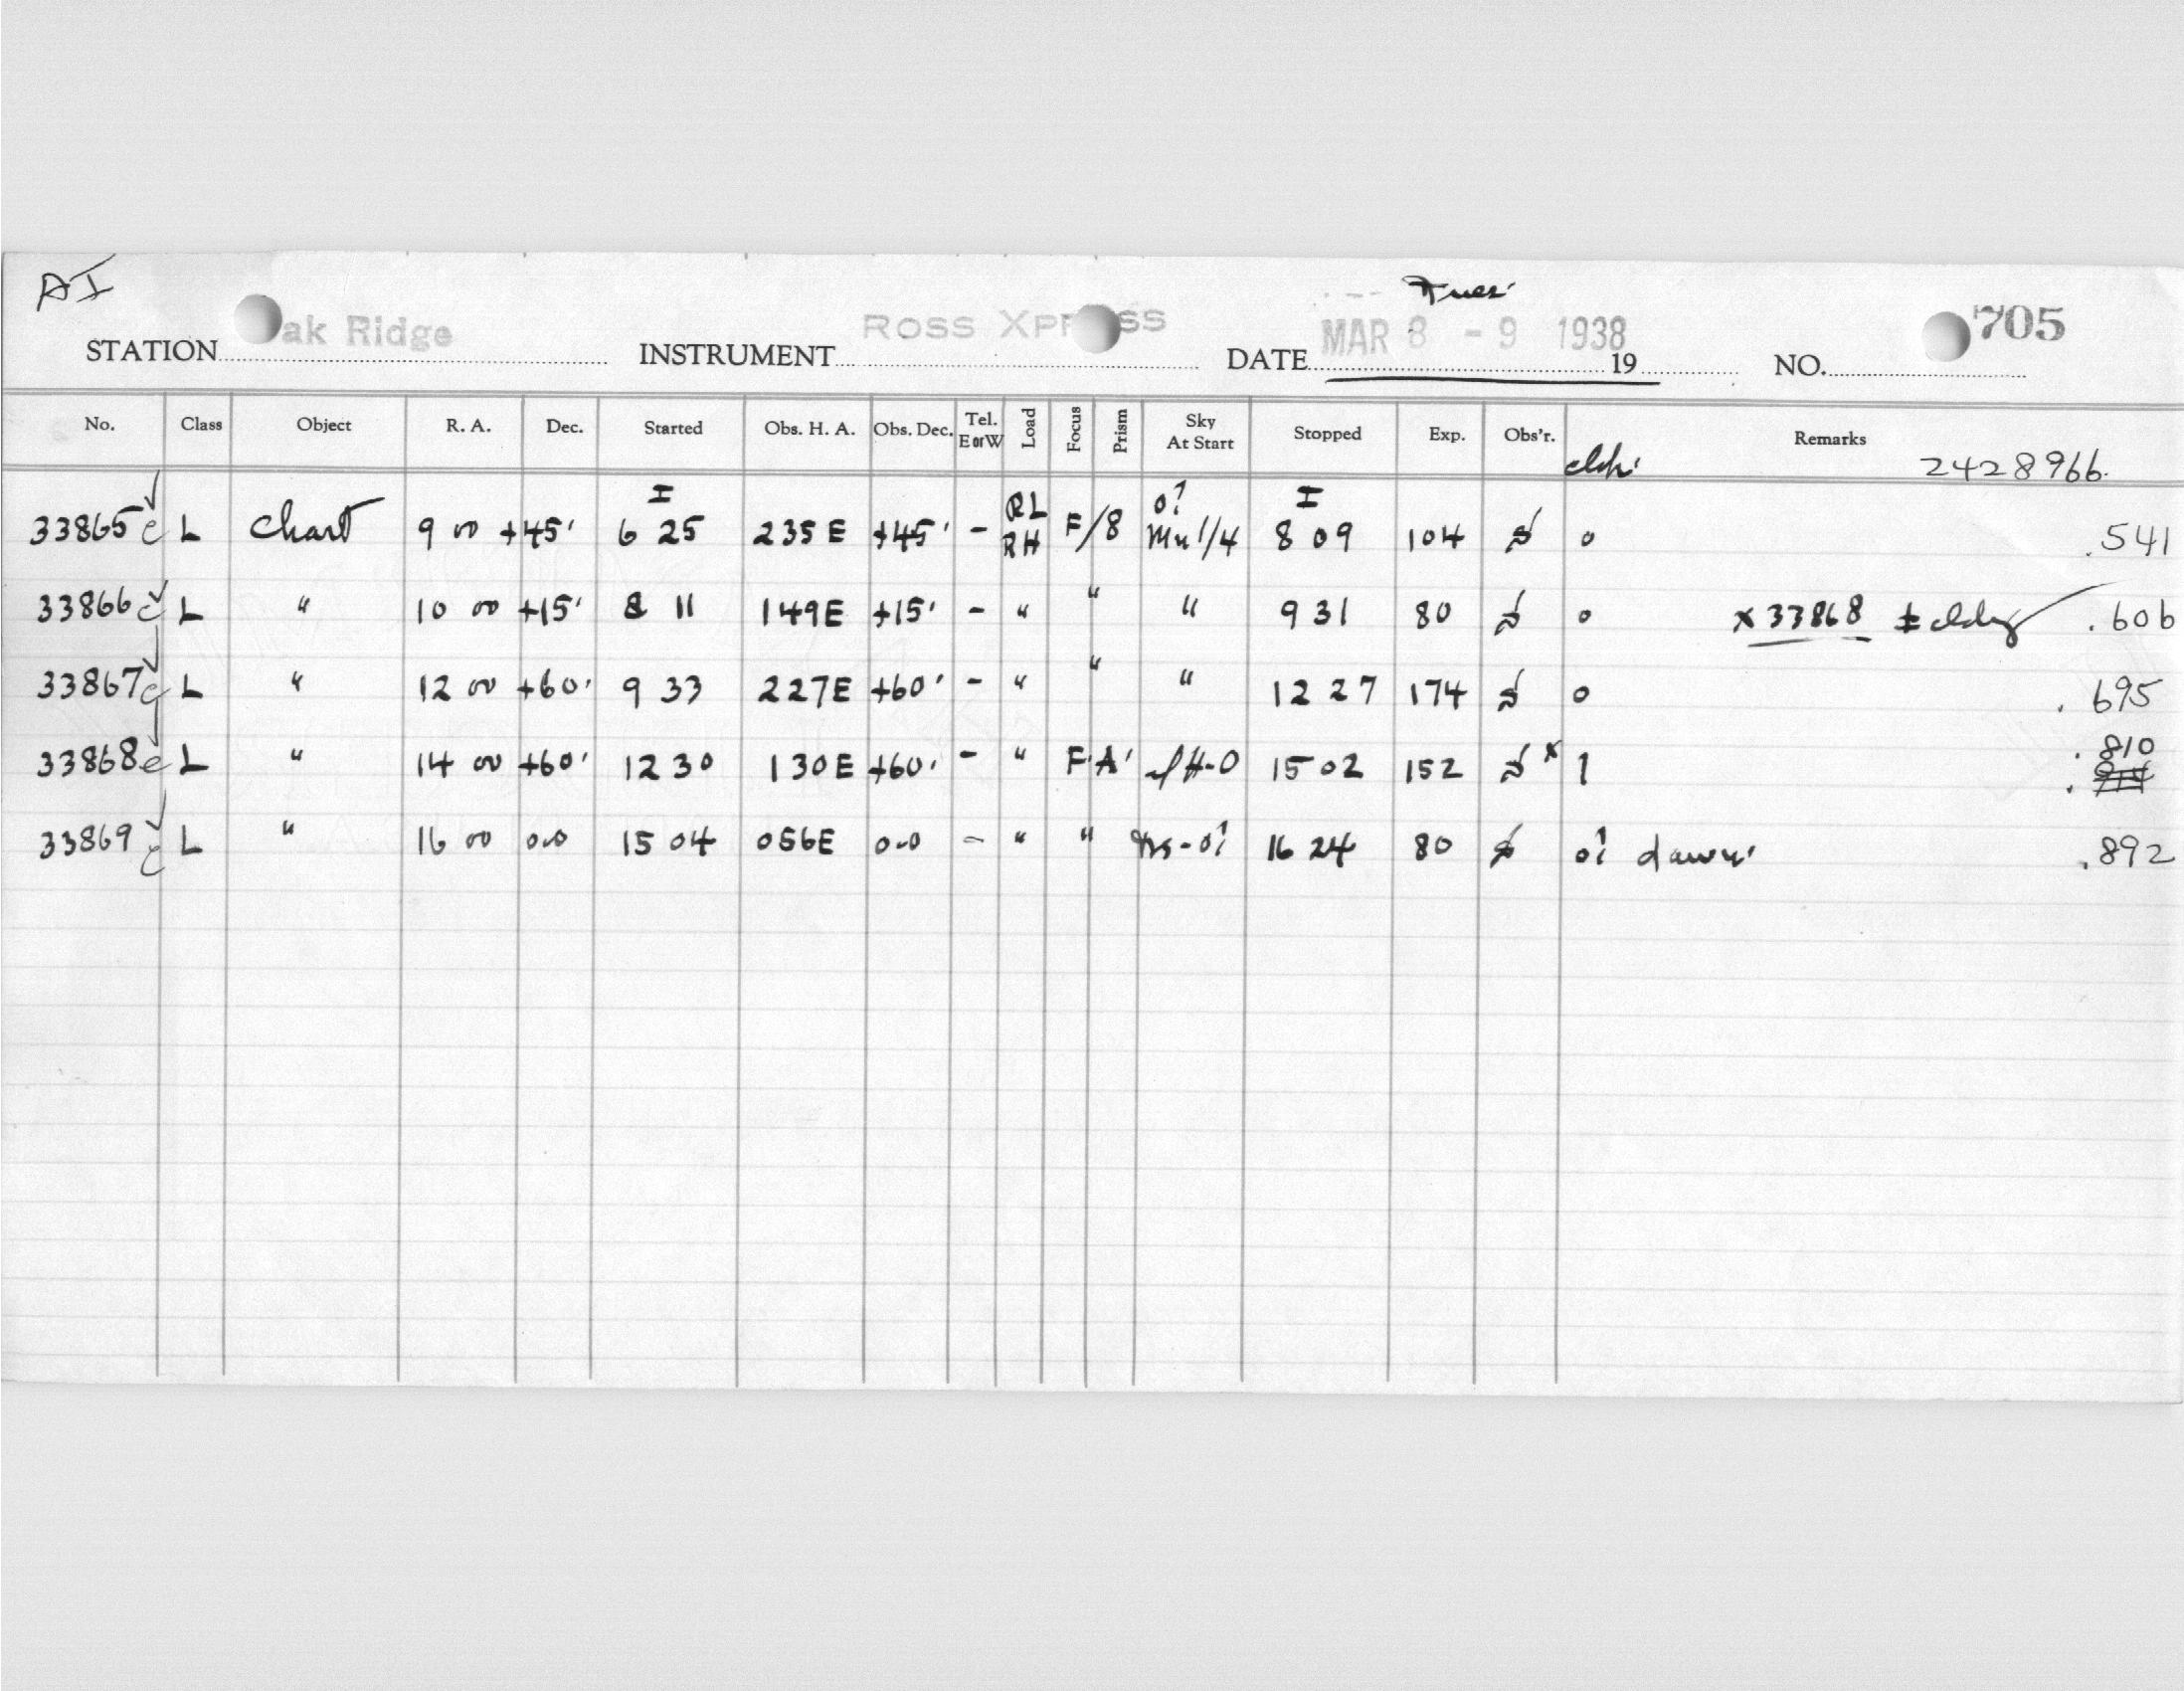 AI
Tues.
STATION Oak Ridge INSTRUMENT ROSS XPRESS DATE MAR 8 - 9 1938 19 NO. 705
No. Class Object R. A. Dec. Started Obs. H. A. Obs. Dec. Tel. E or W Load Focus Prism Sky At Start Stopped Exp. Obs'r. Remarks
cldn. 2428966.
33865 c L Chart 9 00 +45' I 6 25 235 E +45' - RL RH F/8 0? Mn 1/4 I 8 09 104 0 .541
33866 c L " 10 00 +15' 8 11 149E +15' - " " " 9 31 80 0 x 33868 ± cldy .606
33867 c L " 12 00 +60' 9 33 227E +60' - " " " 12 27 174 0 .695
33868 c L " 14 00 +60' 12 30 130E +60' - " F.A. H-0 15 02 152 x 1 .810
33869 c L " 16 00 0-0 15 04 056E 0-0 - " " -0? 16 24 80 0? dawn. .892